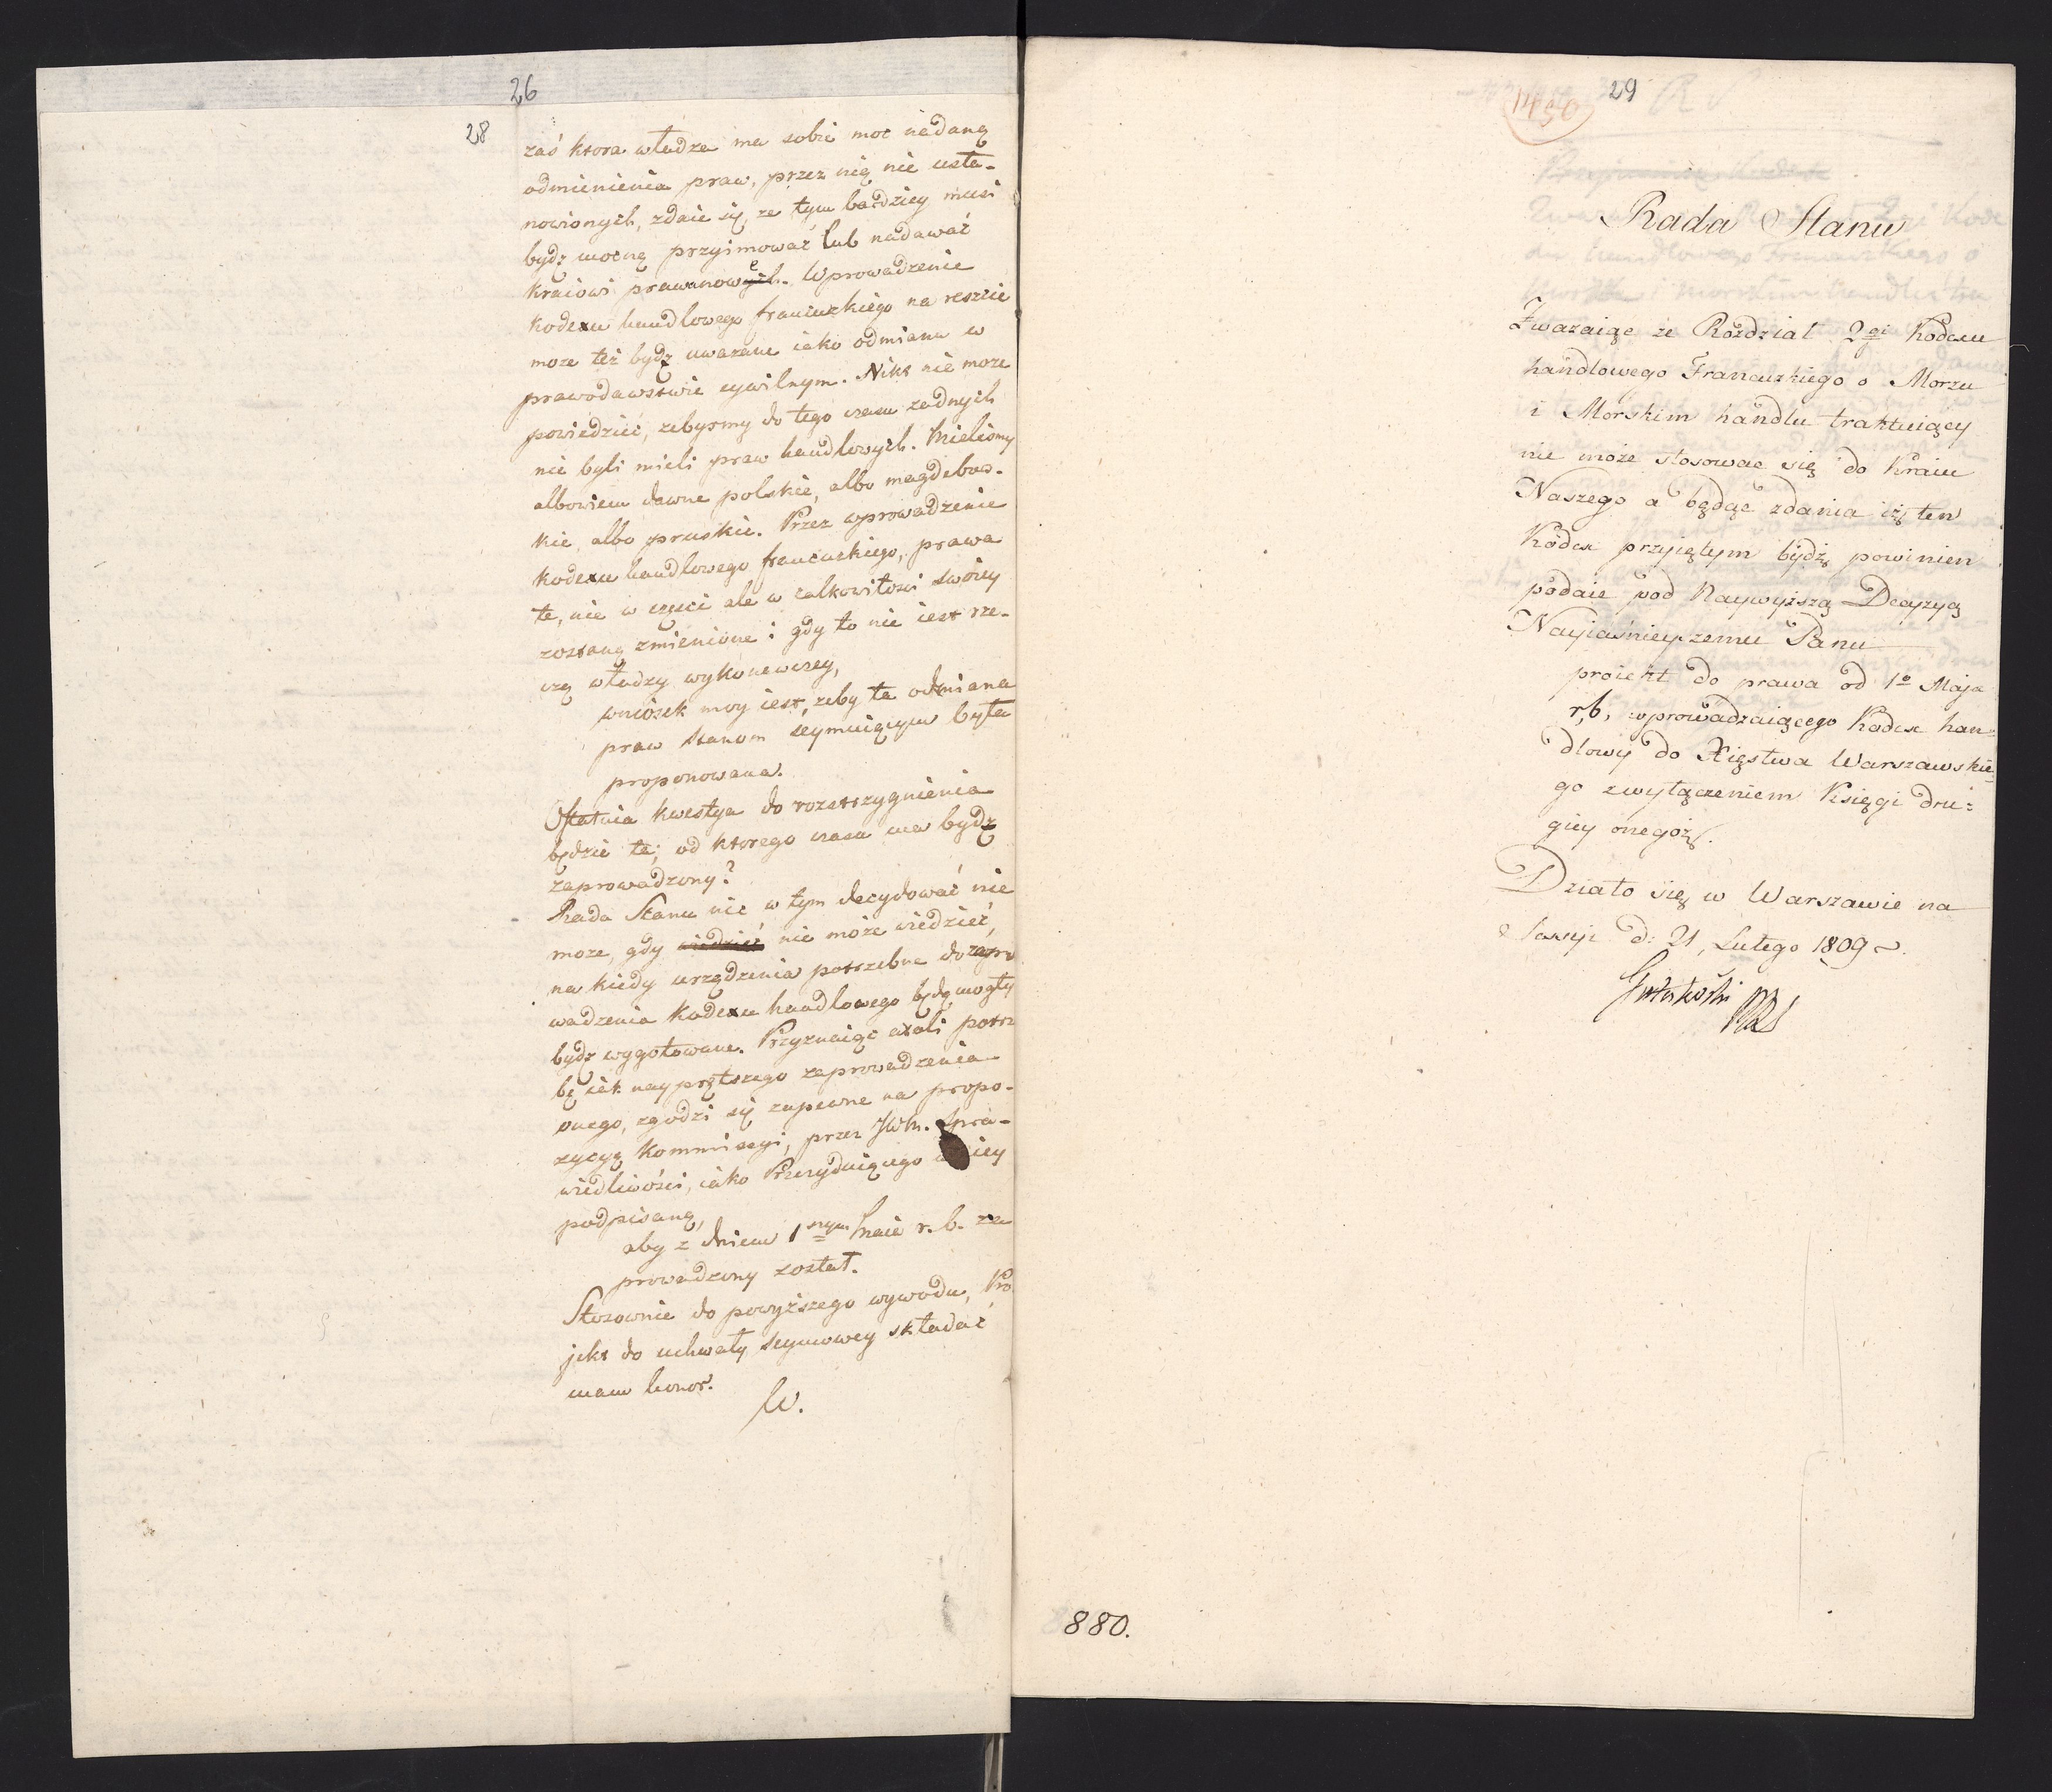 26
28
zaś ktora władza ma sobie moc nadaną
odmienienia praw, przez nią nie usta-
nowionych, zdaie się, ze tym bardziey musi
bydz mocną przyimować lub nadawać
kraiowi prawa nowe. Wprowadzenie
kodexu handlowego francuzkiego na reszcie
moze też bydz uwazane iako odmiana w
prawodawstwie cywilnym. Nikt nie moze
powiedzieć, zebysmy do tego czasu zadnych
nie byli mieli praw handlowych. Mieliśmy
albowiem dawne polskie, albo magdebur-
kie, albo pruskie. Przez wprowadzenie
kodexu handlowego francuskiego, prawa
te, nie w części ale w całkowitości swoiey
zostaną zmienione i gdy to nie iest rze-
czą władzy wykonawczey,
wniosek moy iest, zeby ta odmiana
praw stanom seymuiącym była
proponowana.
Ostatnia kwestya do rozstrzygnienia
będzie ta; od ktorego czasu ma bydz
zaprowadzony?
Rada Stanu nic w tym decydować nie
moze, gdy wiedzieć nie może wiedzieć,
na kiedy urządzenia potrzebne do zapro
wadzenia kodexu handlowego będą mogły
bydz wygotowane. Przyznaiąc atoli potrz
bę iak nayprętszego zaprowadzenia
onego, zgodzi się zapewne na propo-
zycyą kommissyi, przez JWM. Spra-
wiedliwości, iako Prezyduiącego w niey
podpisaną,
aby z dniem 1szym Maia r. b. za
prowadzony został.
Stosownie do powyższego wywodu, Pro
jekt do uchwały seymowey składać
mam honor.
W.
29
1450
Rada Stanu
Zwazaiąc że Rozdział 2gi Kodexu
handlowego Francuzkiego o Morzu
i Morskim handlu traktuiący
nie może stosować się do Kraiu
Naszego a będąc zdania iż ten
Kodex przyiętym bydź powinien
podaie pod Naywyższą Decyzyą
Nayiaśnieyszemu Panu
proiekt do prawa od 1o Maja
r, b, wprowadzaiącego Kodex han=
dlowy do Xięstwa Warszawskie=
go z wyłączeniem Księgi dru=
giey onegoż.
Działo się w Warszawie na
Sessyi d: 21, Lutego 1809
PRS
880.